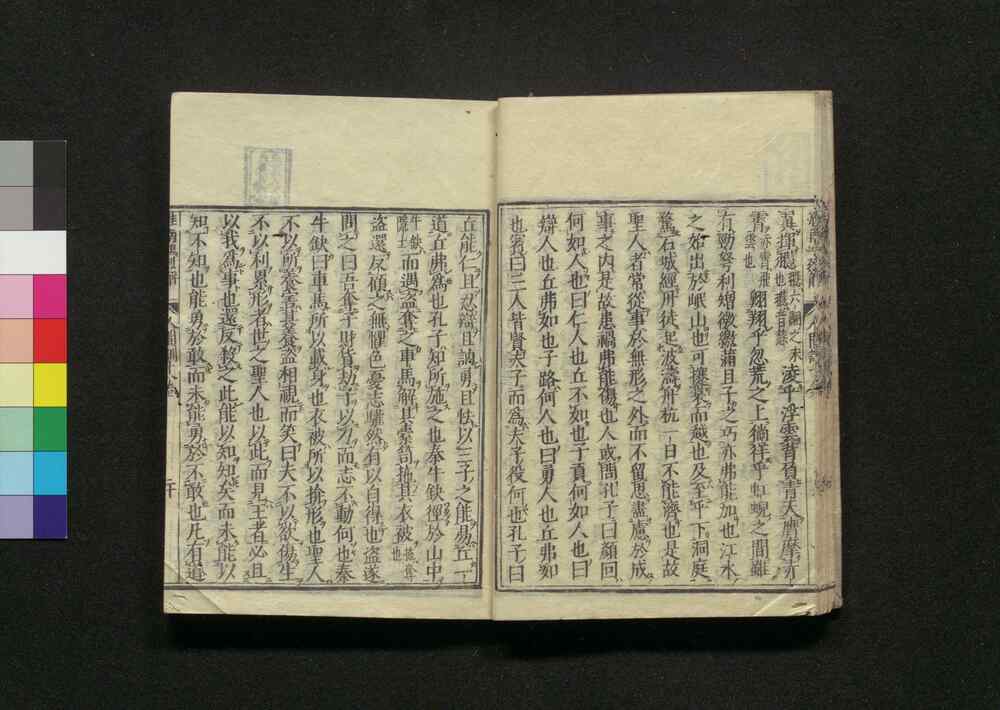 翼揮䎗凌乎浮雲背負青天膺摩赤
霄赤霄飛雲也翱翔乎忽荒之上徜徉乎虹蜺之間雖
有勁弩利矰微繳蒲且子之巧亦弗能加也江水
之始出於岷山也可攓裳而越也及至乎下洞庭
騖石城經丹徒起波濤舟杭一日不能濟也是故
聖人者常從事於無形之外而不留思盡慮於成
事之内是故患禍弗能傷也人或問孔子曰顏回
何如人也曰仁人也丘不如也子貢何如人也曰
辯人也丘弗如也子路何人也曰勇人也丘弗如
也賓曰三人皆賢夫子而爲夫子役何也孔子曰
丘能仁且忍辯且訥勇且怯以三子之能易丘一
道丘弗爲也孔子知所施之也秦牛缺徑於山中
牛缺隱士而遇盗奪之車馬解其橐笥拖其衣被拖奪也
盗還反顧之無懼色憂志驩然有以自得也盗遂
問之曰吾奪子財貨劫子以刀而志不動何也秦
牛缺曰車馬所以載身也衣被所以揜形也聖人
不以所養害其養盗相視而笑曰夫不以欲傷生
不以利累形者世之聖人也以此而見王者必且
以我爲事也還反殺之此能以知知矣而未能以
知不知也能勇於敢而未能勇於不敢也凡有道